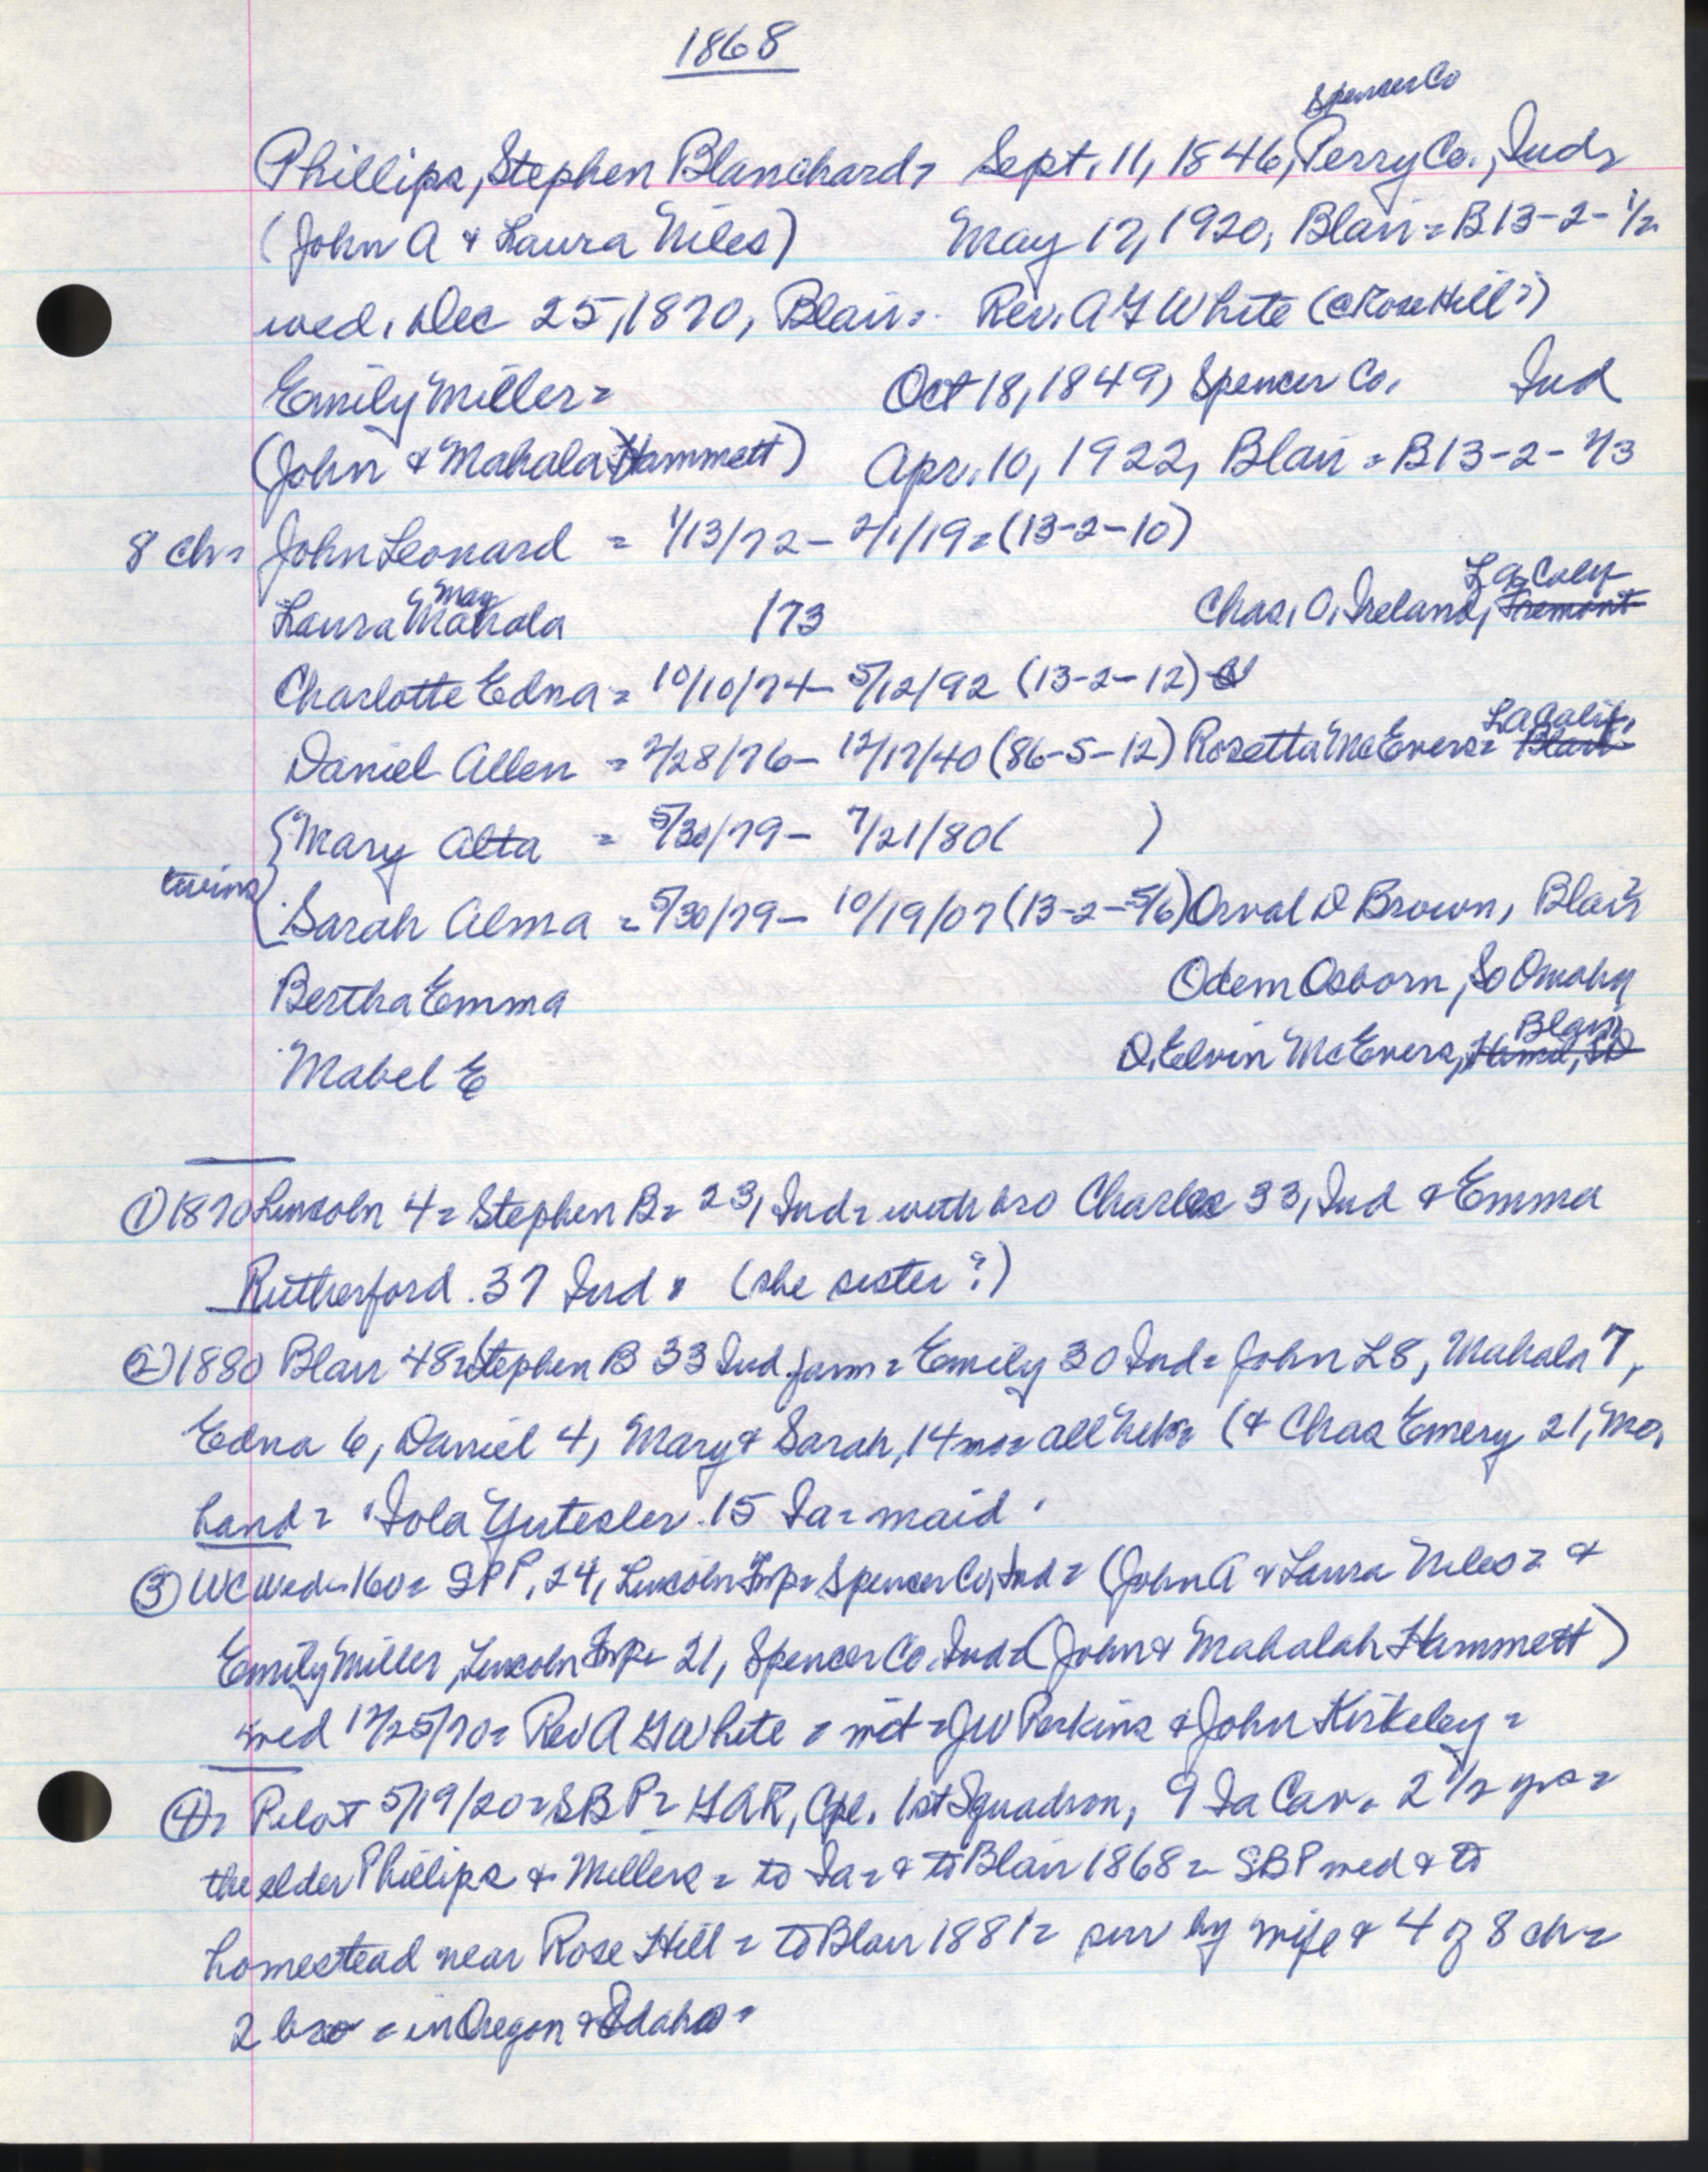 1868
Spencer Co
Phillips, Stephen Blanchard = Sept. 11, 1846, Perry Co., Ind =
(John A & Laura Niles) May 17, 1920, Blair = B13-2-1/2
wed. Dec 25, 1870, Blair = Rev. A G White (@ Rose Hill?)
Emily Miller = Oct 18, 1849, Spencer Co. Ind
(John & Mahala Hammett) Apr. 10, 1922, Blair = B13-2-1/3
8 ch = John Leonard = 1/13/72 – 2/1/19 = (13-2-10)
May La Calif
Laura Mahala /73 Chas. O. Ireland, Fremont
Charlotte Edna = 10/10/74 – 5/12/92 (13-2-12)
La Calif.
Daniel Allen = 2/28/76 – 12/17/40 (86-5-12) Rosetta McEvers = Blair
{Mary Alta = 5/30/79 – 7/21/80 ( )
twins
Sarah Alma = 5/30/79 – 10/19/07 (13-2-5/6) Orval D Brown, Blair
Bertha Emma Odem Osborn, So Omaha
Blair
Mabel E D. Elvin McEvers,
① 1870 Lincoln 4 = Stephen B = 23, Ind = with bro Charles 33, Ind & Emma
Rutherford 37 Ind = (she sister?)
② 1880 Blair 48 = Stephen B 33 Ind farm = Emily 30 Ind = John L 8, Mahala 7,
Edna 6, Daniel 4, Mary & Sarah, 14 mo = all Neb = (& Chas Emery 21, Mo,
hand = Iola 15 Ia = maid
③ WC Wed = 160 = SPP, 24, Lincoln Twp = Spencer Co, Ind = (John A & Laura Niles = &
Emily Miller, Lincoln Twp = 21, Spencer Co. Ind = (John & Mahalah Hammett)
wed 12/25/70 = Rev A G White = wit = JW Perkins & John Kirkeley =
④ = Pilot 5/19/20 = SBP = GAR, Cpl. 1st Squadron, 9 Ia Cav. 2 1/2 yrs =
the elder Phillips & Millers = to Ia = & to Blair 1868 = SBP wed & to
homestead near Rose Hill = to Blair 1881 = sur by wife & 4 of 8 ch =
2 bro = in Oregon & Idaho =